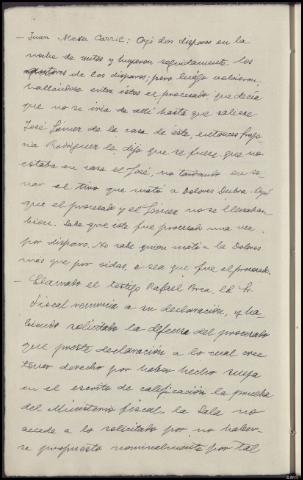 – Juan Mosa Carril: Oyó dos disparos en la
noche de autos y huyeron seguidamente los
autores de los disparos; pero luego volvieron,
hallandose entre estos el procesado, que decia
que no se iria de allí hasta que saliese
José Gómez de la casa de éste, entonces
Rodriguez le dijo que se fuese, que no
estaba en casa el José, no tardando en so-
nar el tiro que mató a Dolores Oyó
que el procesado y el Gómez no se llevaban
bien. Sabe que este fue procesado una vez
por disparos. No sabe quien mató a la Dolores
más que por oidas, o sea que fue el procesado.
– Llamado el testigo Rafael el Sr.
Fiscal renuncia a su declaración, y ha-
biendo solicitado la defensa del procesado
que preste declaración a lo cual cree
tener derecho por haber hecho suya
en el escrito de calificación la prueba
del Ministerio fiscal la Sala no
accede a lo solicitado por no haber-
se propuesto nominalmente por tal